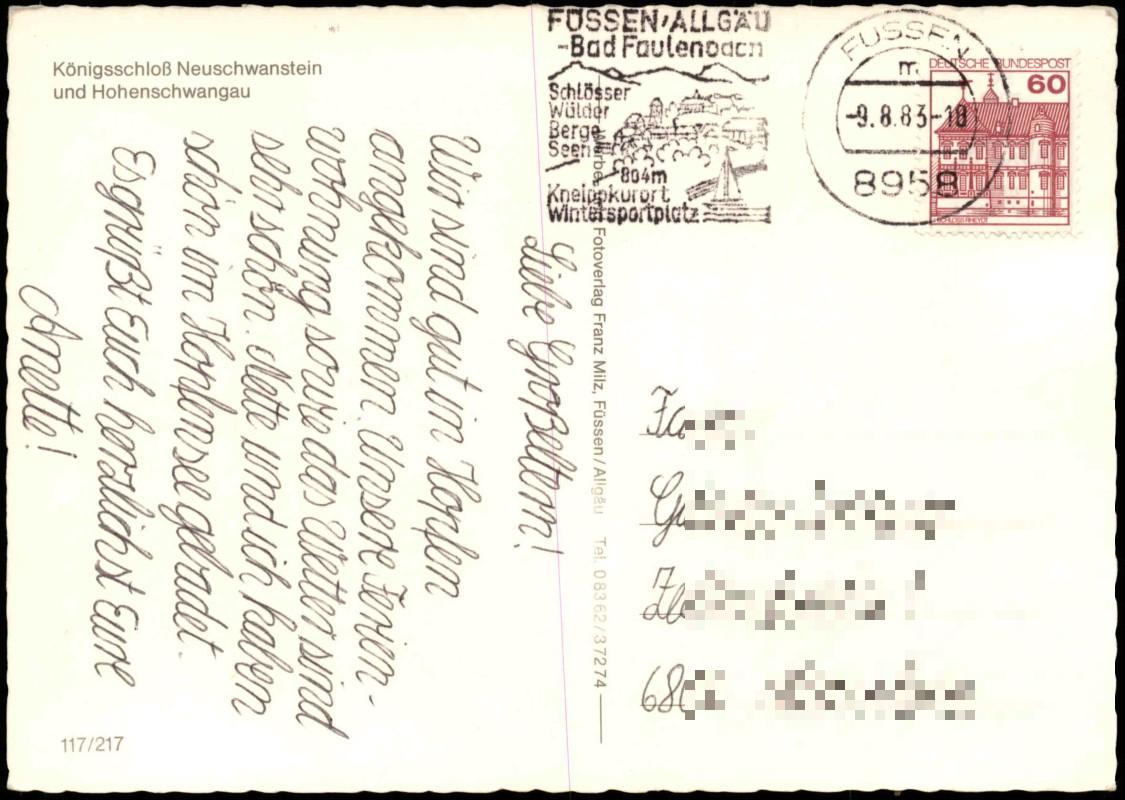 Königsschloß Neuschwanstein
und Hohenschwangau
Liebe Großeltern!
Wir sind gut in Hopfen
angekommen. Unsere Ferien-
wohnung sowie das Wetter sind
seh schön. Nette und ich haben
schön im Hopfensee gebadet.
Es grüßt Euch herzlichst Eure
Anette!
117/217
FÜSSEN/ALLGÄU
-Bad Faulenbach
Schlösser
Wälder
Berge
Seen
804m
Kneippkurort
Wintersportplatz
FÜSSEN
m
-9.8.83-10
8958
DEUTSCHE BUNDESPOST
60
SCHLOSS RHEYDT
Fotoverlag Franz Milz, Füssen/Allgäu Tel. 08362/37274